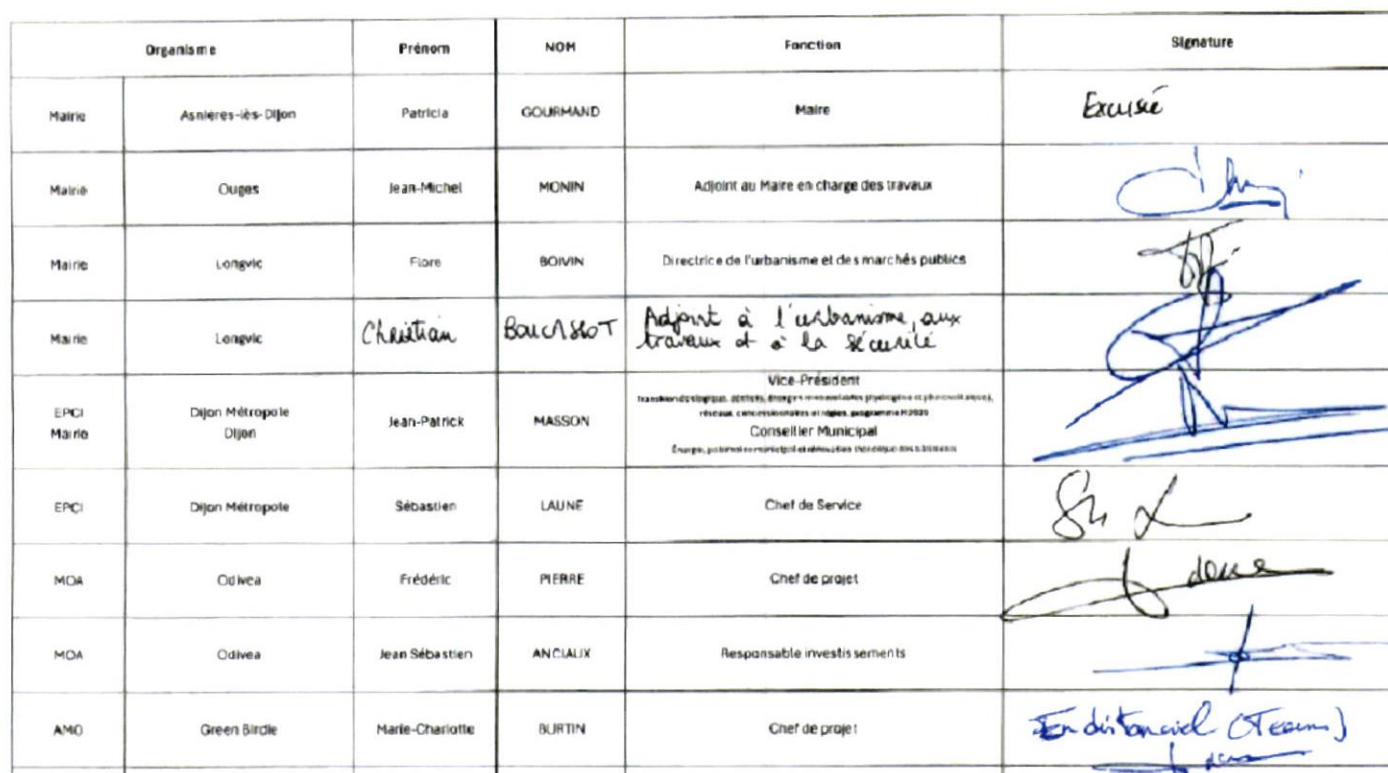 Organisme Prénom NOM Fonction Signature
Mairie Asnières-lès-Dijon Patricia GOURMAND Maire Excusée
Mairie Ouges Jean-Michel MONIN Adjoint au Maire en charge des travaux
Mairie Longvic Flore BOIVIN Directrice de l'urbanisme et des marchés publics
Mairie Longvic Christian Adjoint à l'urbanisme, aux
travaux et à la sécurité
Vice-Président
EPCI Dijon Métropole Jean-Patrick MASSON
Mairie Dijon
réseaux, concessionnaires et régies, programme H2020
Conseiller Municipal
Énergie, patrimoine municipal et rénovation thermique des bâtiments
EPCI Dijon Métropole Sébastien LAUNE Chef de Service
MOA Odivea Frédéric PIERRE Chef de projet
MOA Odivea Jean Sébastien ANCIAUX Responsable investissements
AMO Green Birdie Marie-Charlotte BURTIN Chef de projet En distanciel (Teams)